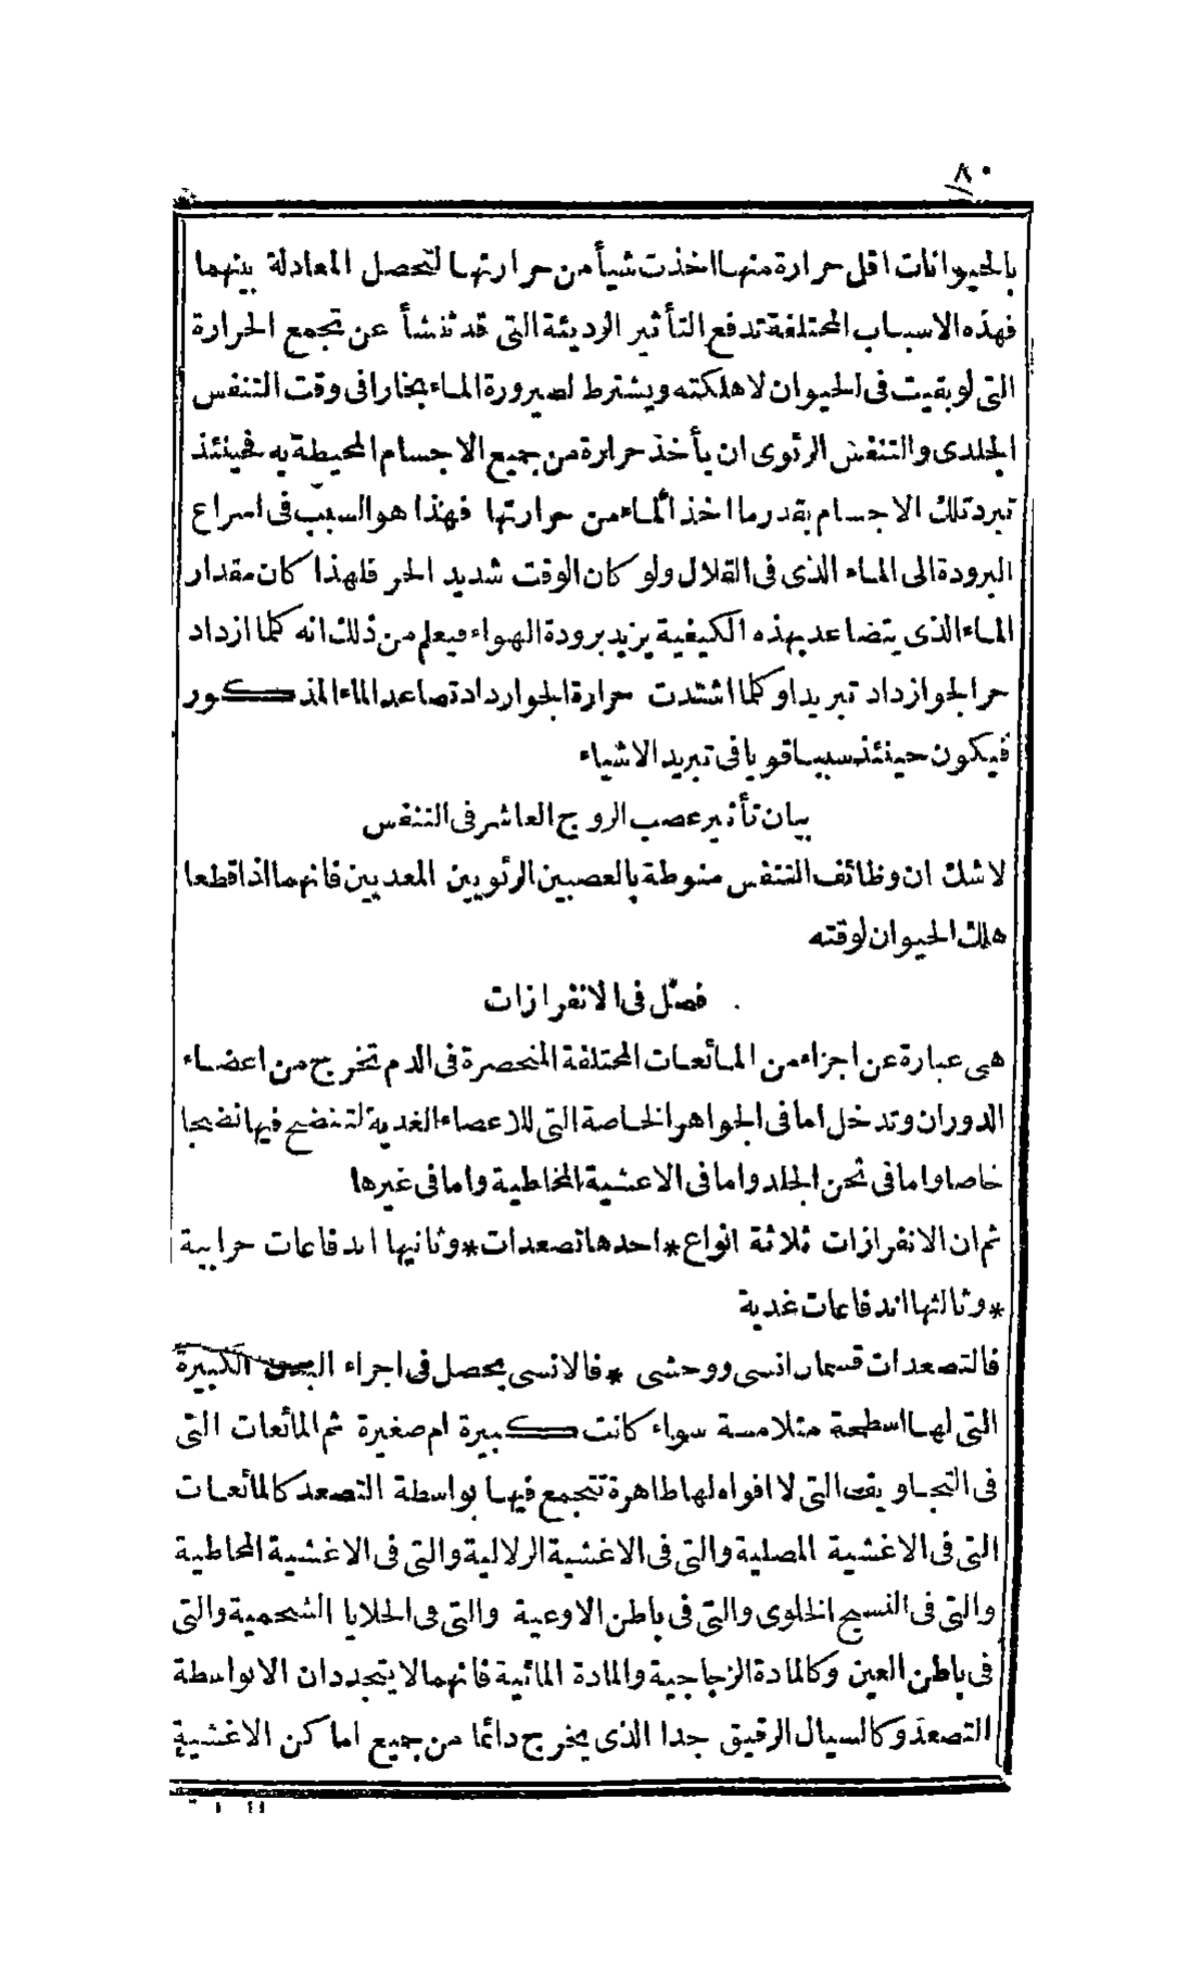 ٨٠
بالحيوانات اقل حرارة منها اخذت شيأ من حرارتها لتحصل المعادلة بينهما
فهذه الاسباب المختلفة تدفع التأثير الرديئة التى قد تنشأ عن تجمع الحرارة
التى لو بقيت فى الحيوان لاهلكته ويشترط لصيرورة الماء بخارا فى وقت التنفس
الجلدى والتنفس الرئوى ان يأخذ حرارة من جميع الاجسام المحيطة به فحينئذ
تبرد تلك الاجسام بقدر ما اخذ الماء من حرارتها فهذا هو السبب فى اسراع
البرودة الى الماء الذى فى القلال ولو كان الوقت شديد الحر فلهذا كان مقدار
الماء الذى يتضاعد بهذه الكيفية يزيد برودة الهواء فيعلم من ذلك انه كلما ازداد
حر الجو ازداد تبريدا وكلما اشتدت حرارة الجو ازداد تصاعد الماء المذكور
فيكون حينئذ سببا قويا فى تبريد الاشياء
بيان تأثير عصب الزوج العاشر فى التنفس
لاشك ان وظائف التنفس منوطة بالعصبين الرئويين المعديين فانهما اذا قطعا
هلك الحيوان لوقته
فصل فى الانفرازات
هى عبارة عن اجزاء من المائعات المختلفة المنحصرة فى الدم تخرج من اعضاء
الدوران وتدخل اما فى الجواهر الخاصة التى للاعضاء الغدية لتنضج فيها نضجا
خاصا واما فى ثخن الجلد واما فى الاغشية المخاطية واما فى غيرها
ثم ان الانفرازات ثلاثة انواع * احدها تصعدات * وثانيها اندفاعات جرابية
* وثالثها اندفاعات غدية
فالتصعدات قسمان انسى ووحشى * فالانسى يحصل فى اجزاء البدن الكبيرة
التى لها اسطحة متلامسة سواء كانت كبيرة ام صغيرة ثم المائعات التى
فى التجاويف التى لا افواه لها ظاهرة تتجمع فيها بواسطة التصعد كالمائعات
التى فى الاغشية المصلية والتى فى الاغشية الزلالية والتى فى الاغشية المخاطية
والتى فى النسيج الخلوى والتى فى باطن الاوعية والتى فى الخلايا الشحمية والتى
فى باطن العين وكالمادة الزجاجية والمادة المائية فانهما لا يتجددان الا بواسطة
التصعد وكالسيال الرقيق جدا الذى يخرج دائما من جميع اماكن الاغشية